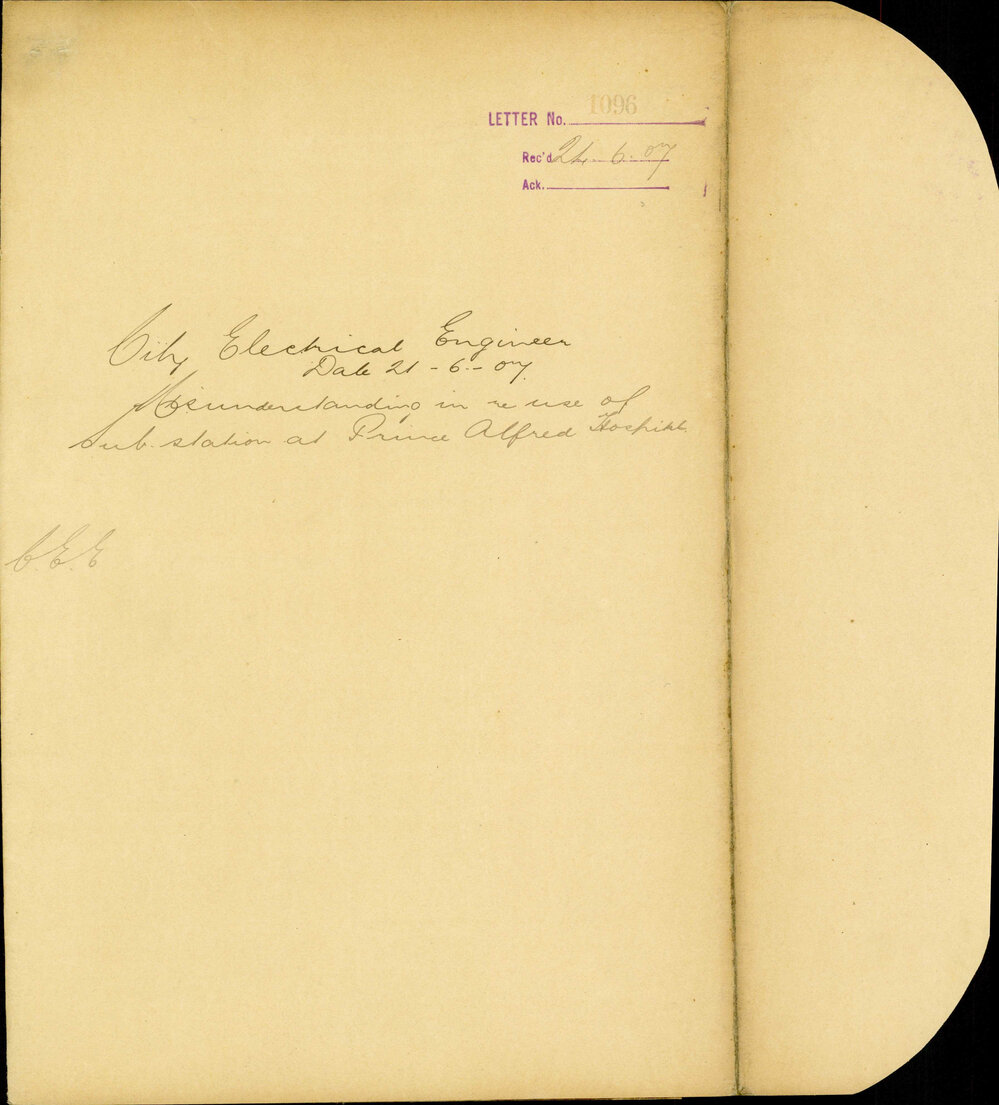 LETTER No. 1096
Rec'd 24.6.07
Ack.
City Electrical Engineer
Date 21-6-07.
Misunderstanding in re use of
Sub-station at Prince Alfred Hospital
C.E.E